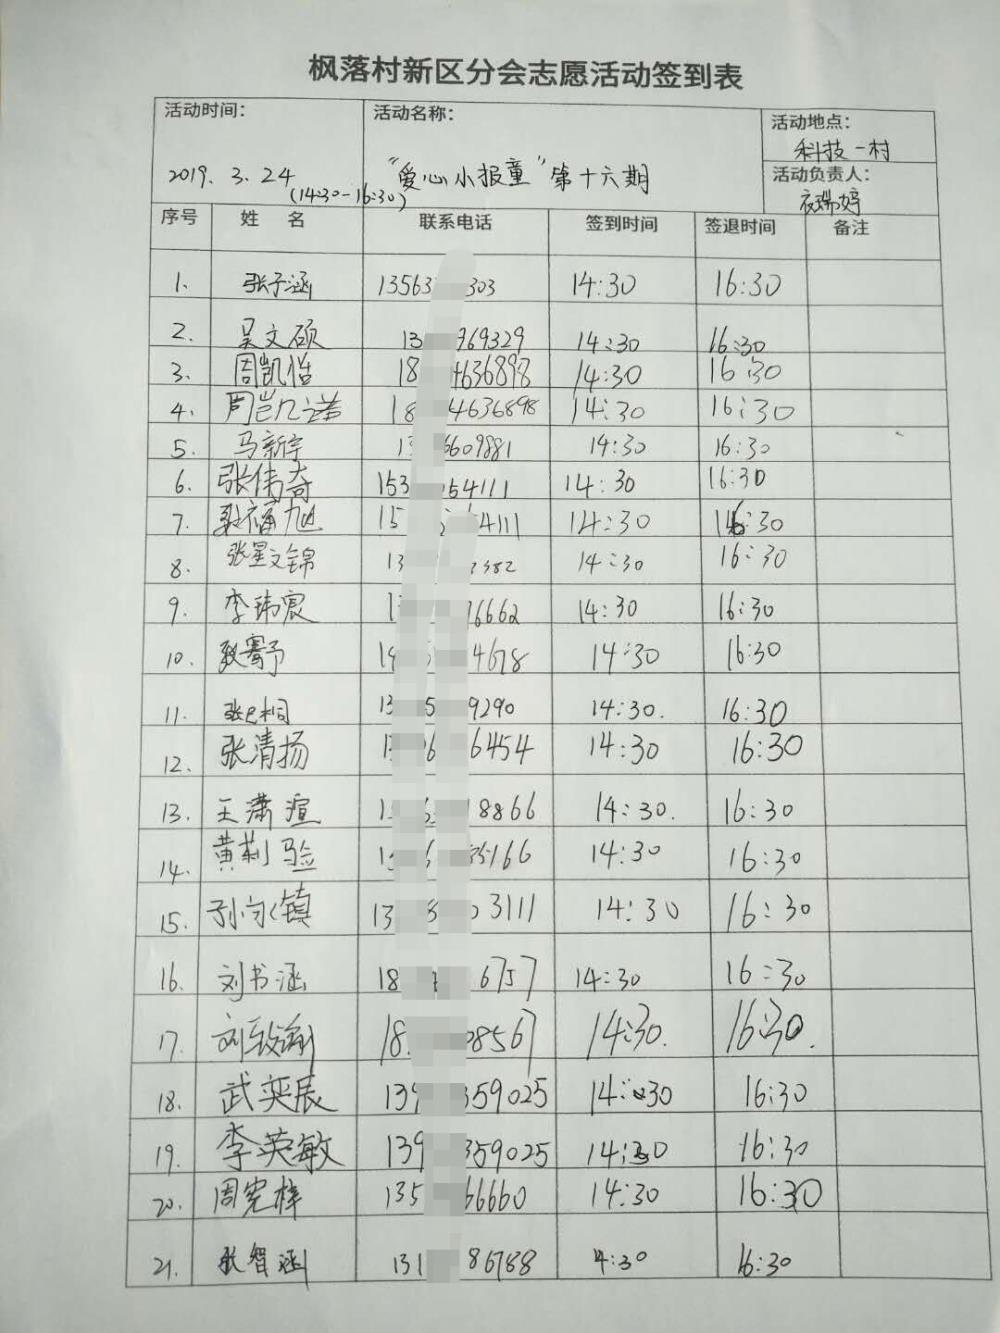 枫落村新区分会志愿活动签到表
活动时间： 活动名称： 活动地点：
科技一村
2019. 3. 24 “爱心小报童”第十六期 活动负责人：
(14:30-16:30) 衣瑞婷
序号 姓 名 联系电话 签到时间 签退时间 备注
1. 张子涵 13563 303 14:30 16:30
2. 吴文硕 13 969329 14:30 16:30
3. 周凯恺 18 4636898 14:30 16:30
4. 周岂凡诺 18 4636898 14:30 16:30
5. 马新宇 1 6609881 14:30 16:30
6. 张伟奇 153 54111 14:30 16:30
7. 旭 15 4111 14:30 16:30
8. 张星文锦 13 382 14:30 16:30
9. 李玮宸 1 6662 14:30 16:30
10. 予 4678 14:30 16:30
11. 张 桐 13 5 9290 14:30. 16:30
12. 张清扬 6 6454 14:30 16:30
13. 王潇渲 8866 14:30. 16:30
14. 黄 5166 14:30 16:30
15. 孙 镇 13 3111 14:30 16:30
16. 刘书涵 18 6757 14:30 16:30
17. 刘 18 8567 14:30. 16:30.
18. 武奕辰 139 359025 14:30 16:30
19. 李英敏 139 359025 14:30 16:30
20. 周宪梓 135 66660 14:30 16:30
21. 张智涵 131 86788 4:30 16:30